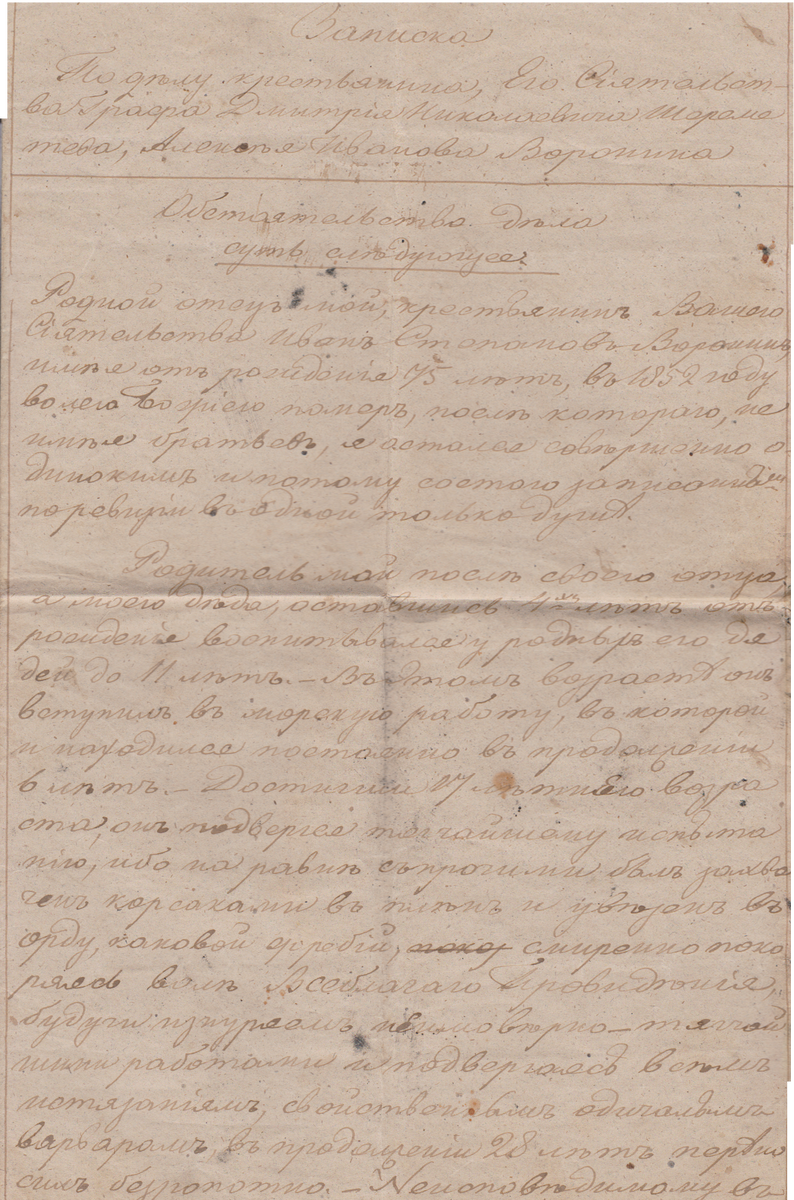 Записка
По дѣлу крестьянина, Его Сіятельст-
ва Графа Дмитрія Николаевича Шереме
тева, Алексѣя Иванова Воронина
Обстоятельства дѣла
суть слѣдующее
Родной отецъ мой, крестьянинъ Вашего
Сіятельства Иванъ Степановъ Воронинъ,
имѣя отъ рожденія 75 лѣтъ, въ 1852 году
волею Божіею померъ, послѣ котораго, не
имѣя братьевъ, я остался совершенно о-
динокимъ и потому состою записаннымъ
по ревизіи въ одной только душѣ.
Родитель мой послѣ своего отца,
а моего дѣда, оставшись 4хъ лѣтъ отъ
рожденія воспитывался у родныхъ его дя
дей до 11 лѣтъ. – Въ этомъ возрастѣ онъ
вступилъ въ морскую работу, въ которой
и находился постоянно въ продолженіи
6 лѣтъ. – Достигши 17 лѣтняго возра
ста, онъ подвергся тягчайшему испыта
нію, ибо на равнѣ съ прочими былъ захва
ченъ корсаками въ плѣнъ и увѣзенъ въ
орду, каковой жребій, смиренно поко
ряясь волѣ Всеблагаго Провидѣнія,
будучи изнуряемъ неимовѣрно – тягчай
шими работами и подвергаясь всѣмъ
истязаніямъ, свойственнымъ одичалымъ
варварамъ, въ продолженіи 28 лѣтъ перено
силъ безропотно. – Неисповѣдимому въ